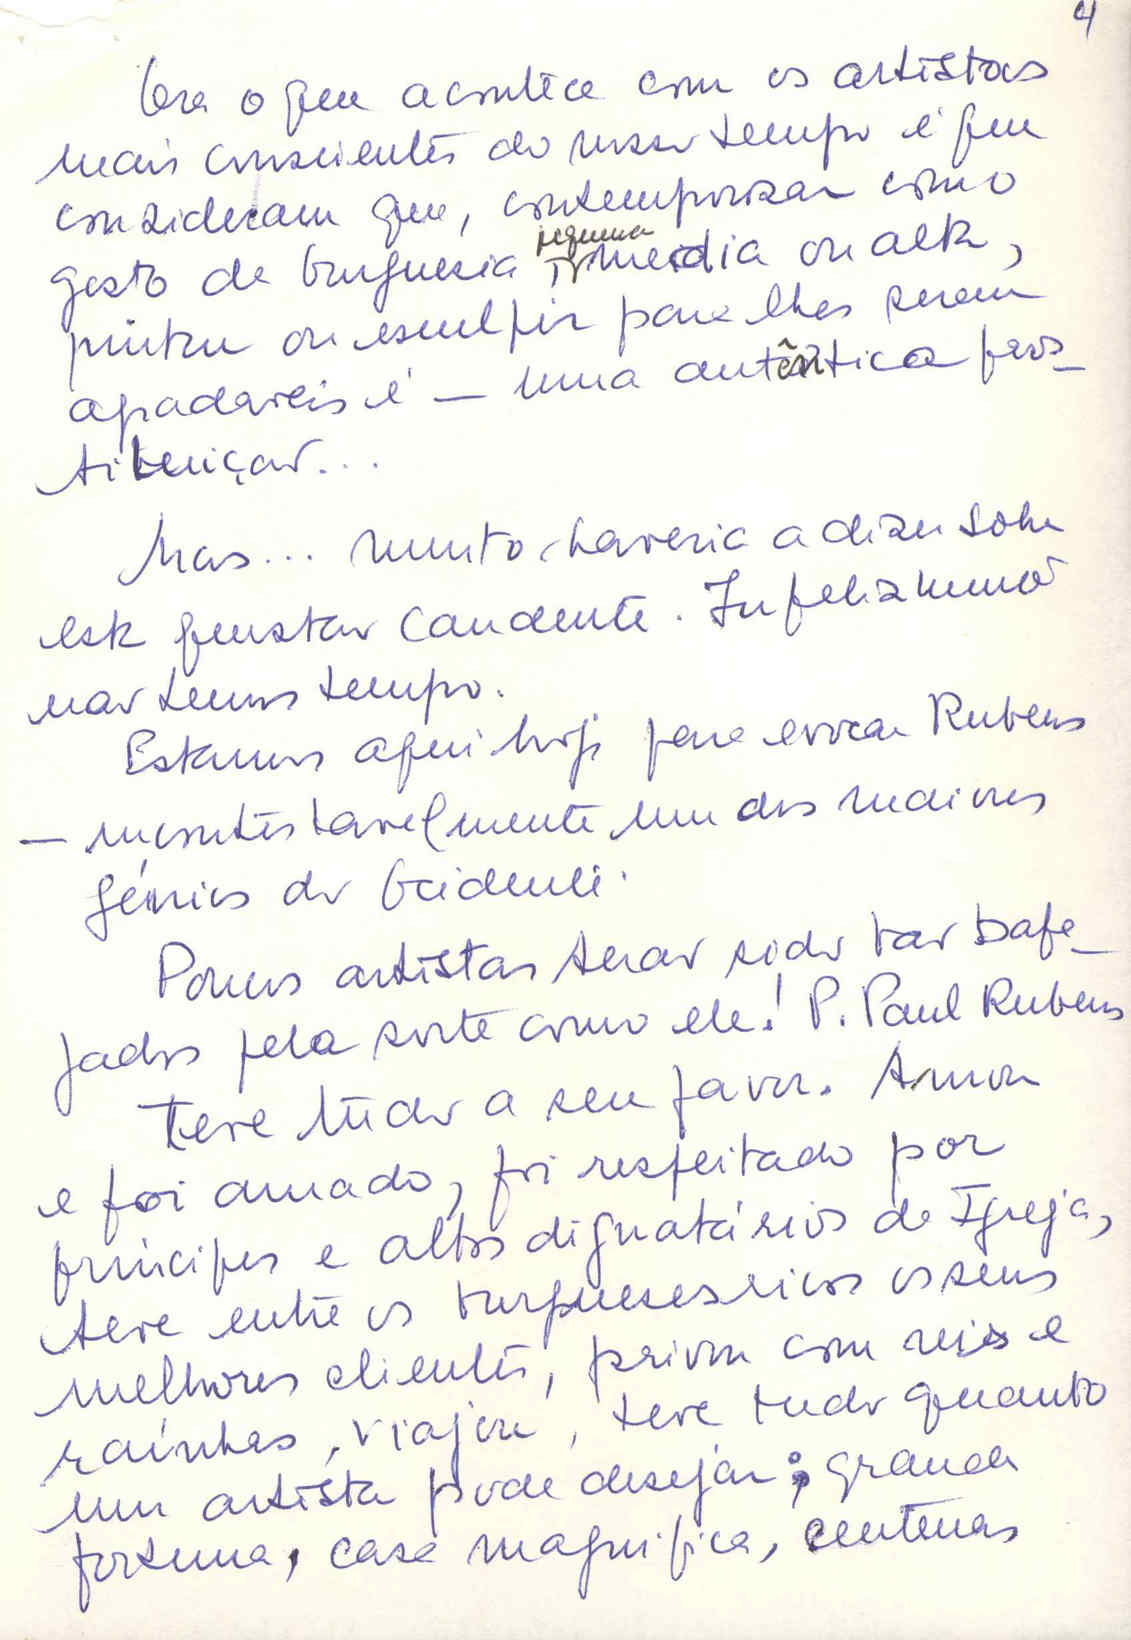 4
Ora o que acontece com os artistas
mais conscientes do nosso tempo é que
consideram que, contemporizar com o
gosto da burguesia pequena média ou alta,
pintar ou esculpir para lhes serem
agradáveis é — uma autêntica pros-
tituição...
Mas... muito haveria a dizer sobre
esta questão candente. Infelizmente
não temos tempo.
Estamos aqui hoje para evocar Rubens
— incontestavelmente um dos maiores
génios do Ocidente.
Poucos artistas terão sido tão bafe-
jados pela sorte como ele! P. Paul Rubens
teve tudo a seu favor. Amou
e foi amado, foi respeitado por
príncipes e altos dignatários da Igreja,
teve entre os burgueses ricos os seus
melhores clientes, privou com reis e
rainhas, viajou, teve tudo quanto
um artista pode desejar; grande
fortuna, casa magnífica, centenas